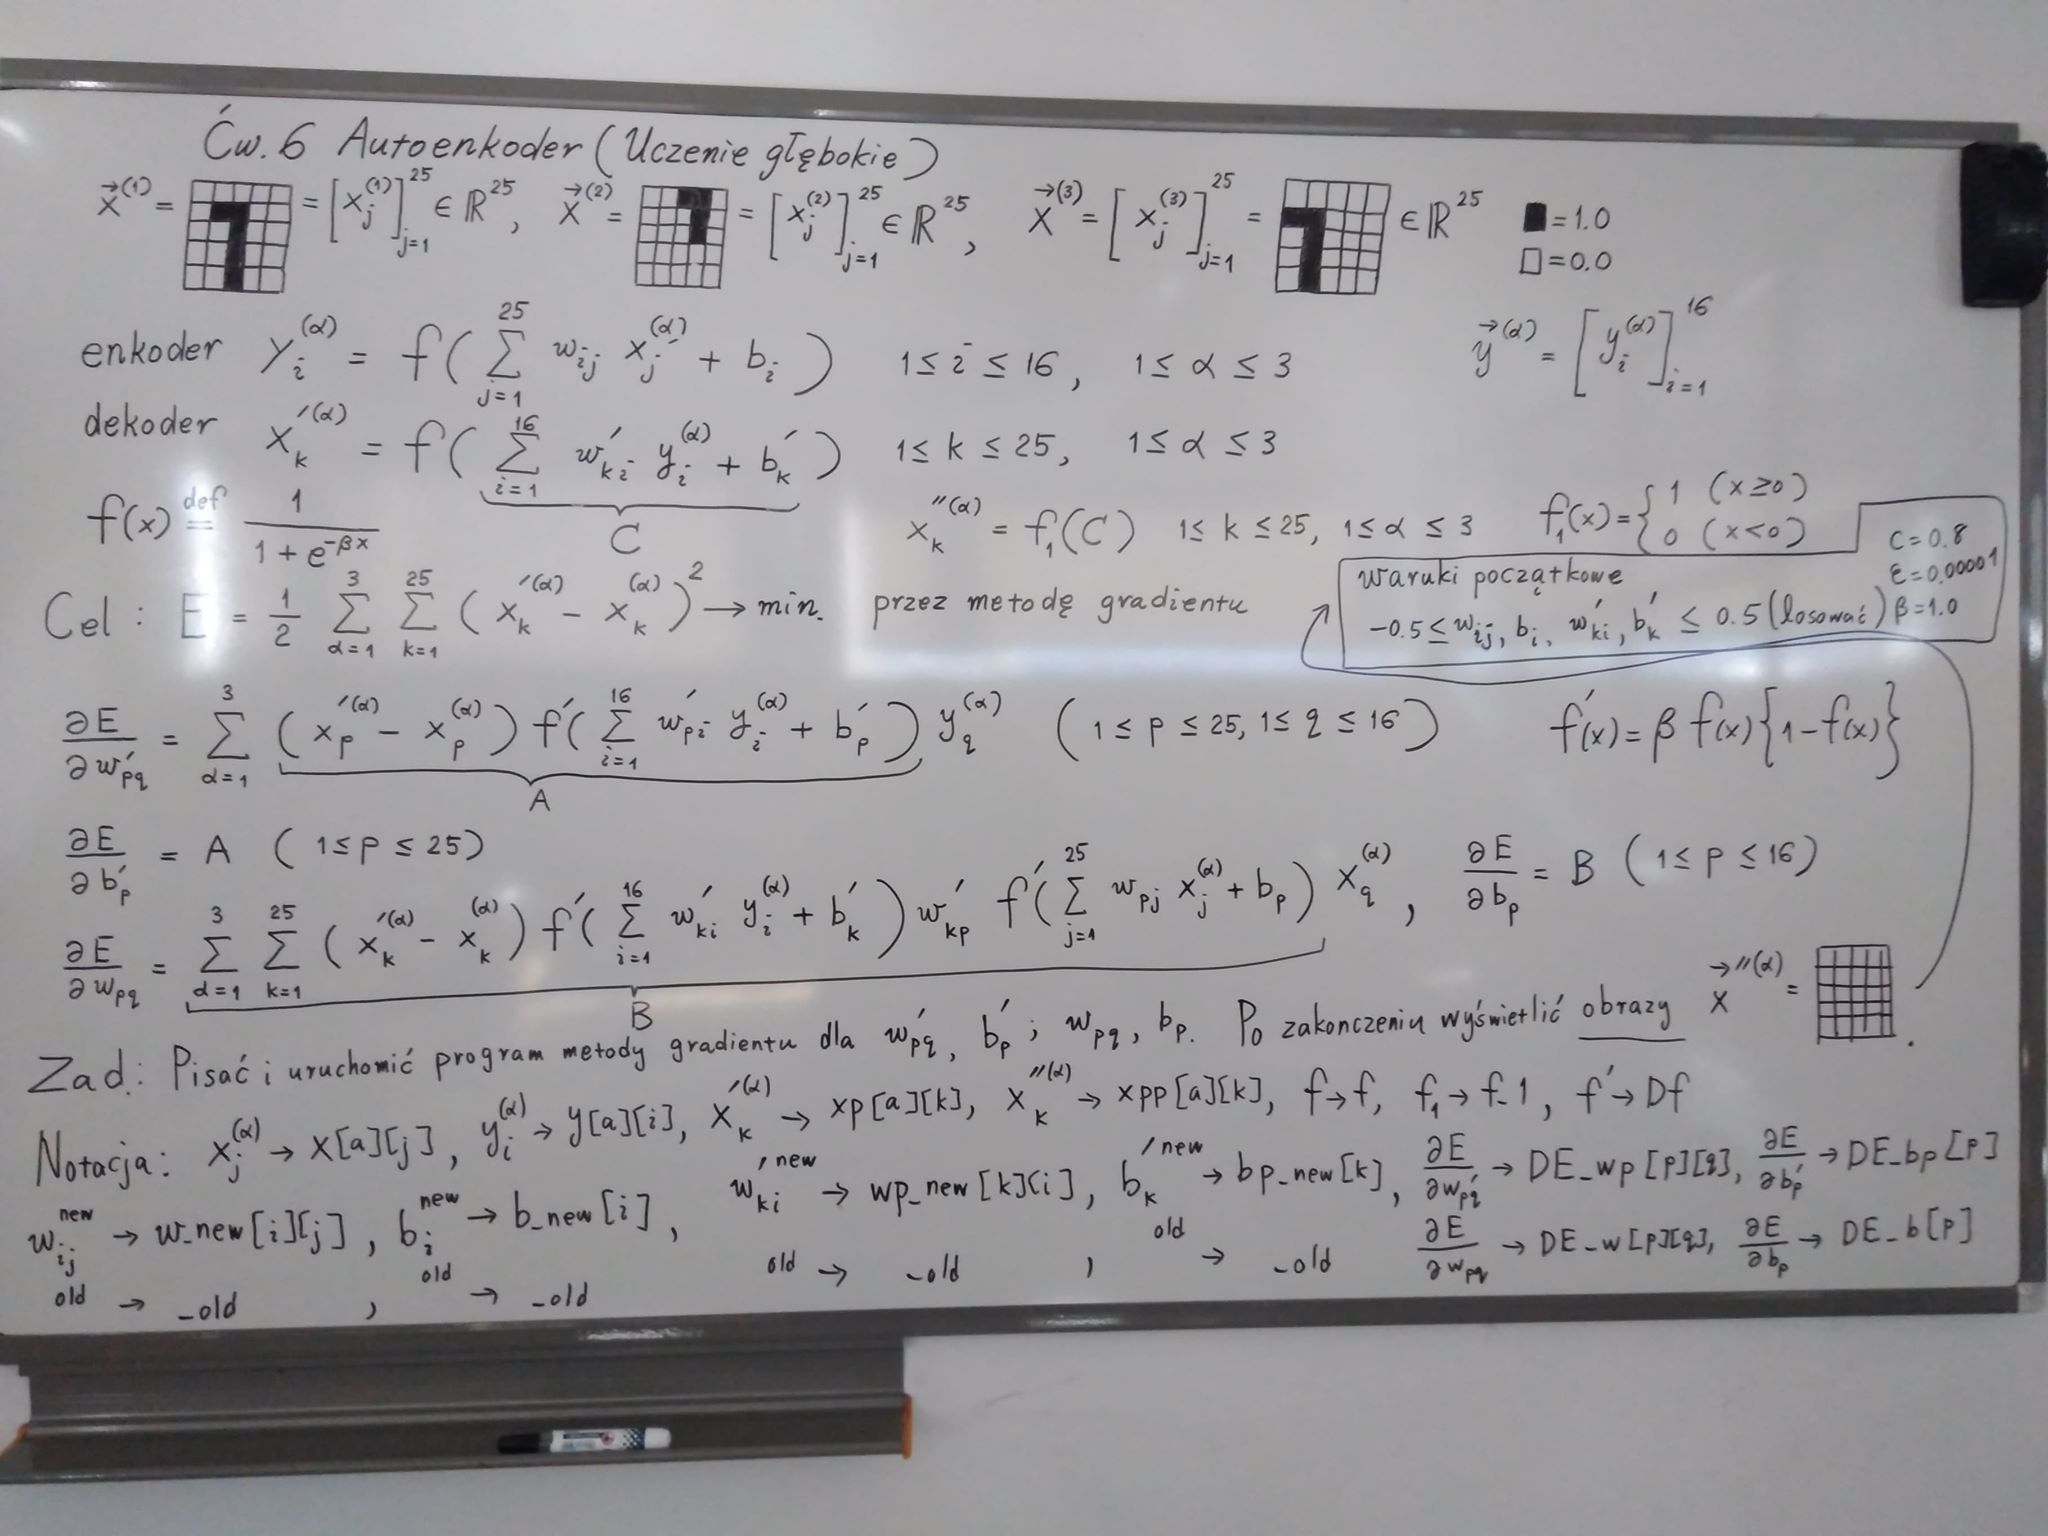 Ćw. 6 Autoenkoder (Uczenie głębokie)
x⃗⁽¹⁾ = = [x_j⁽¹⁾]_{j=1}^{25} ∈ ℝ²⁵, x⃗⁽²⁾ = = [x_j⁽²⁾]_{j=1}^{25} ∈ ℝ²⁵, x⃗⁽³⁾ = [x_j⁽³⁾]_{j=1}^{25} = ∈ ℝ²⁵ ■ = 1.0
□ = 0.0
enkoder y_i^{(α)} = f(∑_{j=1}^{25} w_{ij} x_j^{(α)} + b_i) 1 ≤ i ≤ 16, 1 ≤ α ≤ 3 y⃗^{(α)} = [y_i^{(α)}]_{i=1}^{16}
dekoder x_k'^{(α)} = f(∑_{i=1}^{16} w'_{ki} y_i^{(α)} + b'_k) 1 ≤ k ≤ 25, 1 ≤ α ≤ 3
C
f(x) def= 1 / (1 + e^{-βx}) x_k''^{(α)} = f_1(C) 1 ≤ k ≤ 25, 1 ≤ α ≤ 3 f_1(x) = { 1 (x ≥ 0)
0 (x < 0)
Cel: E = 1/2 ∑_{α=1}^{3} ∑_{k=1}^{25} (x_k'^{(α)} - x_k^{(α)})² → min. przez metodę gradientu
waruki początkowe
c = 0.8
ε = 0.00001
-0.5 ≤ w_{ij}, b_i, w'_{ki}, b'_k ≤ 0.5 (losować) β = 1.0
∂E/∂w'_{pq} = ∑_{α=1}^{3} (x_p'^{(α)} - x_p^{(α)}) f'(∑_{i=1}^{16} w'_{pi} y_i^{(α)} + b'_p) y_q^{(α)} (1 ≤ p ≤ 25, 1 ≤ q ≤ 16) f'(x) = β f(x){1 - f(x)}
A
∂E/∂b'_p = A (1 ≤ p ≤ 25)
∂E/∂w_{pq} = ∑_{α=1}^{3} ∑_{k=1}^{25} (x_k'^{(α)} - x_k^{(α)}) f'(∑_{i=1}^{16} w'_{ki} y_i^{(α)} + b'_k) w'_{kp} f'(∑_{j=1}^{25} w_{pj} x_j^{(α)} + b_p) x_q^{(α)}, ∂E/∂b_p = B (1 ≤ p ≤ 16)
B
Zad.: Pisać i uruchomić program metody gradientu dla w'_{pq}, b'_p; w_{pq}, b_p. Po zakonczeniu wyświetlić obrazy x⃗''^{(α)} = .
Notacja: x_j^{(α)} → x[a][j], y_i^{(α)} → y[a][i], x_k'^{(α)} → xp[a][k], x_k''^{(α)} → xpp[a][k], f → f, f_1 → f_1, f' → Df
w_{ij}^{new} → w_new[i][j], b_i^{new} → b_new[i], w_{ki}'^{new} → wp_new[k][i], b_k'^{new} → bp_new[k], ∂E/∂w'_{pq} → DE_wp[p][q], ∂E/∂b'_p → DE_bp[p]
old → _old , old → _old old → _old , old → _old ∂E/∂w_{pq} → DE_w[p][q], ∂E/∂b_p → DE_b[p]